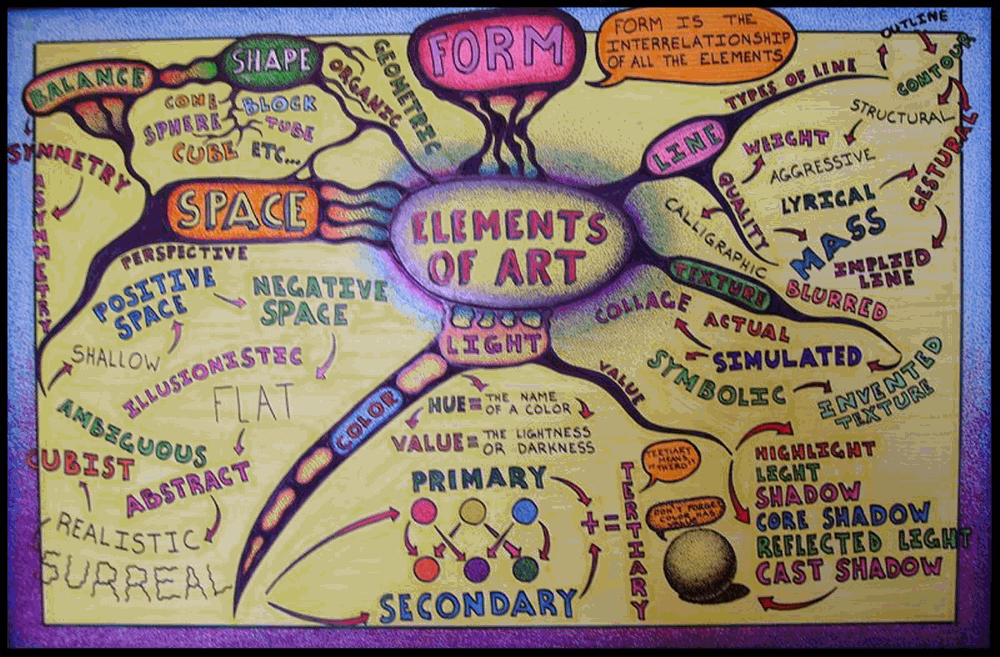 FORM
FORM IS THE
INTERRELATIONSHIP
OF ALL THE ELEMENTS
BALANCE
SHAPE
GEOMETRIC
ORGANIC
CONE
BLOCK
SPHERE
TUBE
CUBE ETC...
SYMMETRY
ASYMMETRY
SPACE
ELEMENTS
OF ART
LINE
TYPES OF LINE
OUTLINE
CONTOUR
STRUCTURAL
GESTURAL
IMPLIED
LINE
QUALITY
WEIGHT
AGGRESSIVE
LYRICAL
MASS
CALLIGRAPHIC
BLURRED
TEXTURE
ACTUAL
COLLAGE
SIMULATED
SYMBOLIC
INVENTED
TEXTURE
PERSPECTIVE
POSITIVE
SPACE
NEGATIVE
SPACE
SHALLOW
ILLUSIONISTIC
FLAT
AMBIGUOUS
CUBIST
ABSTRACT
REALISTIC
SURREAL
LIGHT
COLOR
VALUE
HUE = THE NAME
OF A COLOR
VALUE = THE LIGHTNESS
OR DARKNESS
PRIMARY
SECONDARY
+ =
TERTIARY
TERTIARY
MEANS
"THIRD"!
DON'T FORGET
COLOR HAS
VALUE
HIGHLIGHT
LIGHT
SHADOW
CORE SHADOW
REFLECTED LIGHT
CAST SHADOW